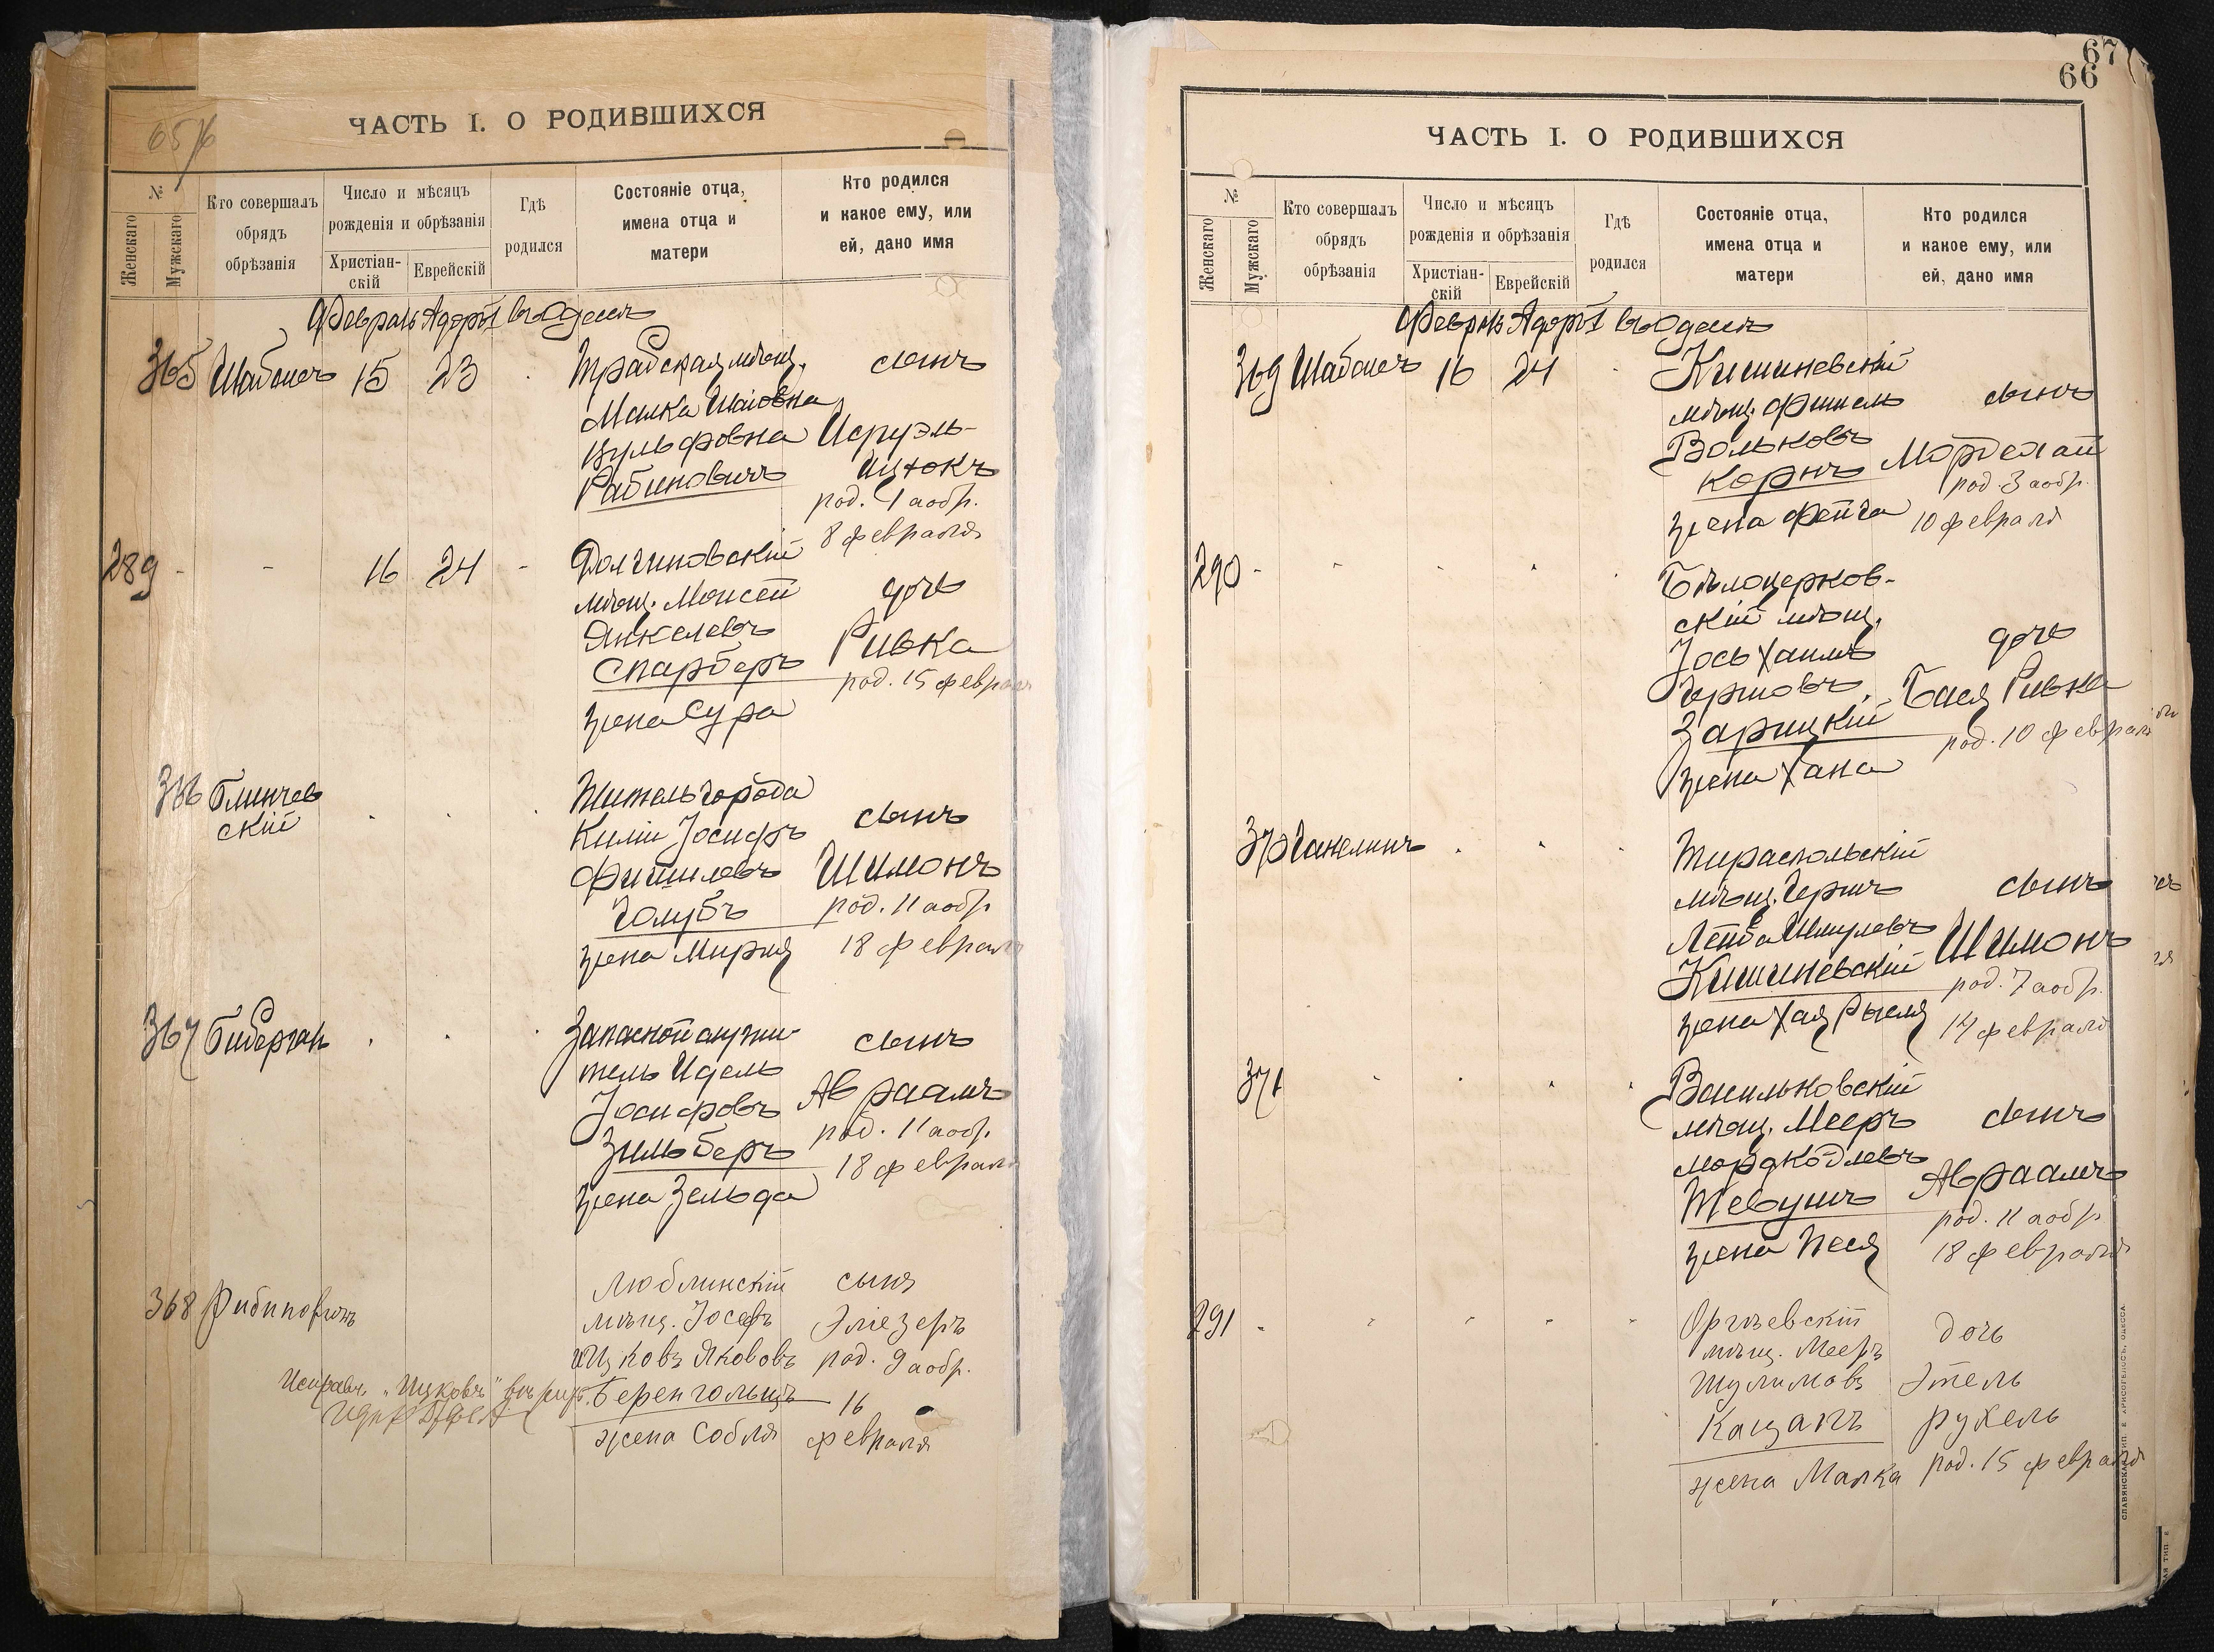 65/6
ЧАСТЬ I. О РОДИВШИХСЯ
№
Женскаго
Мужскаго
Кто совершалъ
обрядъ
обрѣзанія
Число и мѣсяцъ
рожденія и обрѣзанія
Христіан-
скій
Еврейскій
Гдѣ
родился
Состояніе отца,
имена отца и
матери
Кто родился
и какое ему, или
ей, дано имя
Февраль Адоръ I въ Одессѣ
365 Шабонеръ 15 23
мѣщ.
Малка
Вульфовна
Рабиновичъ
сынъ
Исруэль-
Ицхокъ
род. 1 а обр.
8 февраля
289 - - 16 24 -
Долгиновскій
мѣщ. Моисей
Янкелевъ
Спарберъ
жена Сура
дочь
Ривка
род. 15 февраля
366 Блинчев
скій
Житель города
Килiи Іосифъ
Фишилевъ
Голубъ
жена Мирля
сынъ
Шимонъ
род. 11 а обр.
18 февраля
367 Биберган
Запасной служи-
тель Идель
Іосифовъ
Зильберъ
жена Зельда
сынъ
Авраамъ
род. 11 а обр.
18 февраля
368
Люблинскій
мѣщ. Іосефъ
Ицковъ Яковъ
Беренгольцъ
жена Собля
сынъ
Эліезеръ
род. 9 а обр.
16
февраля
Исправл. „Ицковъ“
67
66
ЧАСТЬ I. О РОДИВШИХСЯ
№
Женскаго
Мужскаго
Кто совершалъ
обрядъ
обрѣзанія
Число и мѣсяцъ
рожденія и обрѣзанія
Христіан-
скій
Еврейскій
Гдѣ
родился
Состояніе отца,
имена отца и
матери
Кто родился
и какое ему, или
ей, дано имя
Февраль Адоръ I въ Одессѣ
369 Шабонеръ 16 24
Кишиневскій
мѣщ. Фишель
Вольковъ
Корнъ
жена Фейга
сынъ
Мордехай
род. 3 а обр.
10 февраля
290 -
Бѣлоцерков-
скій мѣщ.
Іось Хаимъ
Гершовъ
Зарицкій
жена Хана
дочь
Бася Ривка
род. 10 февраля
370 Ганелинъ
Тираспольскій
мѣщ. Гершъ
Лейба Шмулевъ
Кишиневскій
жена Хая Рысля
сынъ
Шимонъ
род. 7 а обр.
14 февраля
371
Васильковскій
мѣщ. Мееръ
Мордковъ
Тевушъ
жена Песя
сынъ
Авраамъ
род. 11 а обр.
18 февраля
291 -
Оргѣевскій
мѣщ. Мееръ
Шулимовъ
Кацапъ
жена Малка
дочь
Этель
Рухель
род. 15 февраля